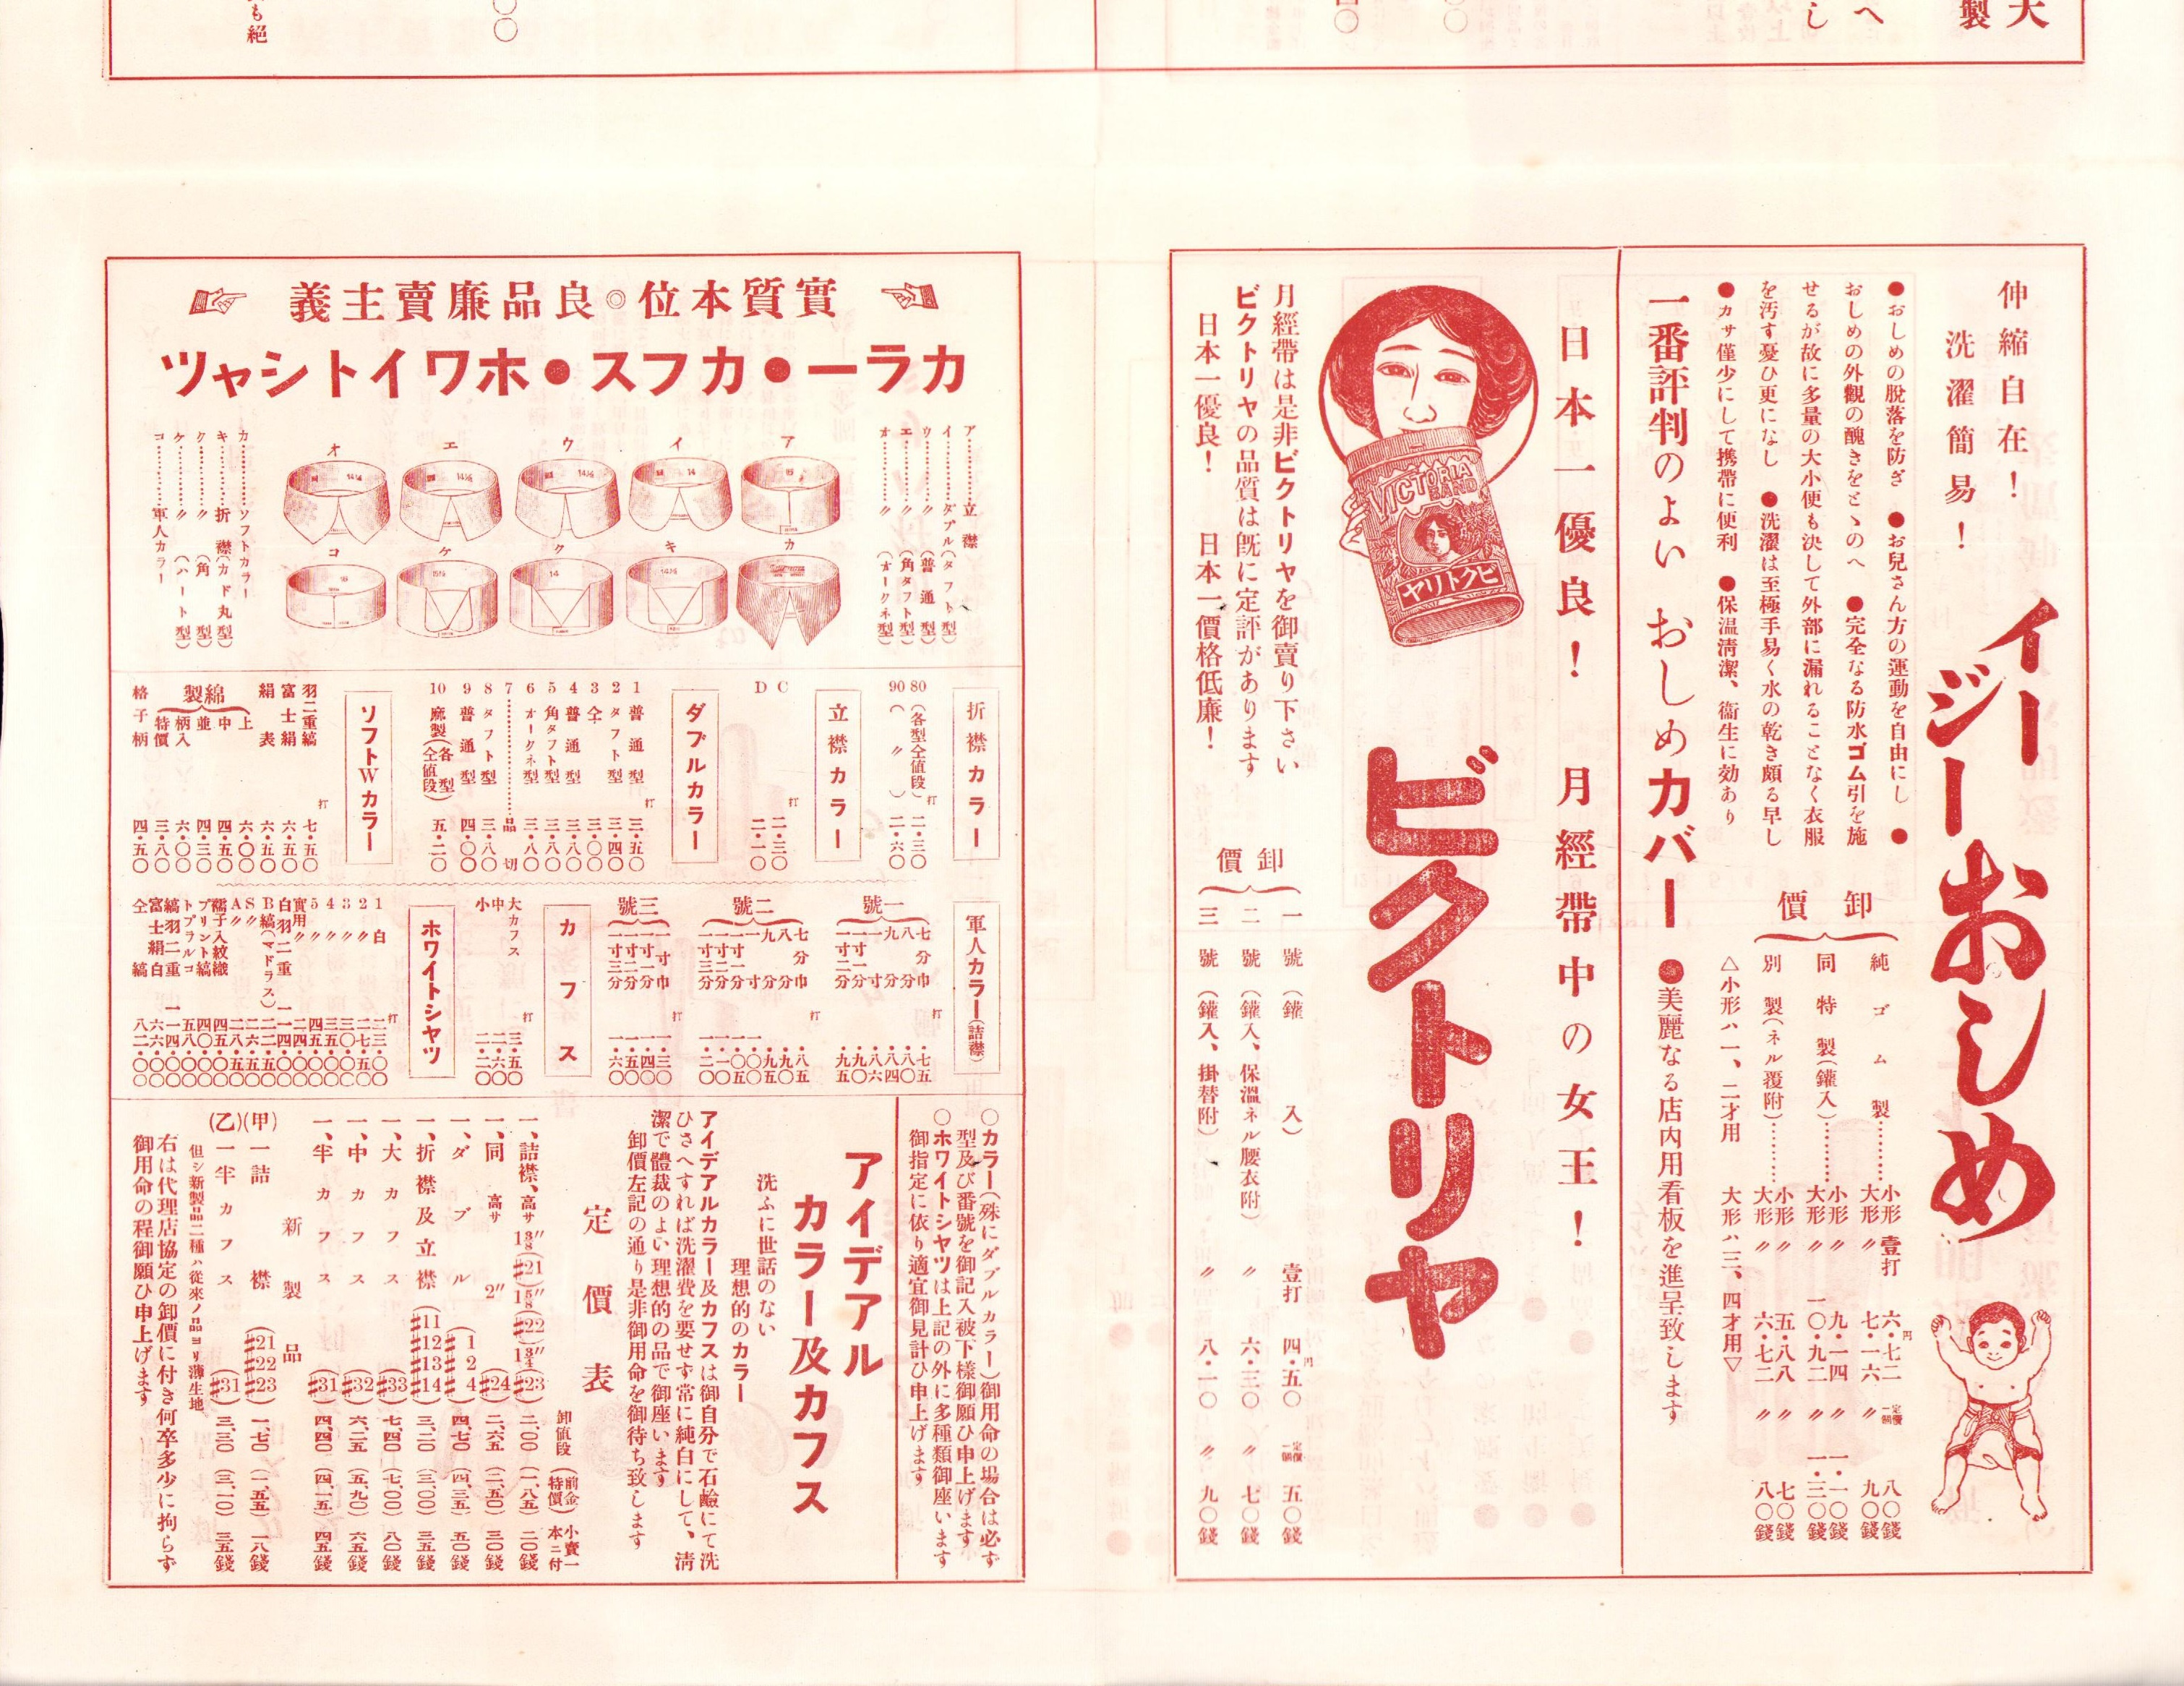 大
製
へ
し
も絶
イージーおしめ
伸縮自在！
洗濯簡易！
●おしめの脱落を防ぎ ●お兒さん方の運動を自由にし ●
おしめの外觀の醜きをとゝのへ ●完全なる防水ゴム引を施
せるが故に多量の大小便も決して外部に漏れることなく衣服
を汚す憂ひ更になし ●洗濯は至極手易く水の乾き頗る早し
●カサ僅少にして携帶に便利 ●保温清潔、衞生に効あり
卸價
純ゴム製………小形 壹打 六・七二円 定價一個 八〇錢
大形 〃 七・一六 〃 九〇錢
同特製(鑵入)……小形 〃 九・一四 〃 一・一〇錢
大形 〃 一〇・九二 〃 一・三〇錢
別製(ネル覆附)……小形 〃 五・八八 〃 七〇錢
大形 〃 六・七二 〃 八〇錢
△小形ハ一、二才用 大形ハ三、四才用▽
一番評判のよい おしめカバー ●美麗なる店内用看板を進呈致します
日本一優良！ 月經帶中の女王！
ビクトリヤ
VICTORIA
BAND
ビクトリヤ
月經帶は是非ビクトリヤを御賣り下さい
ビクトリヤの品質は既に定評があります
日本一優良！ 日本一價格低廉！
卸價
一號(鑵入) 壹打 四・五〇円 定價一個 五〇錢
二號(鑵入、保溫ネル腰衣附) 〃 六・三〇 〃 七〇錢
三號(鑵入、掛替附) 〃 八・一〇 〃 九〇錢
實質本位◎良品廉賣主義
カラー●カフス●ホワイトシャツ
ア………立襟
イ………ダブル(タフト型)
ウ………〃(普通型)
エ………〃(角タフト型)
オ………〃(オークネ型)
ア
イ
ウ
エ
オ
カ
キ
ク
ケ
コ
カ………ソフトカラー
キ………折襟(カド丸型)
ク………〃(角型)
ケ………〃(ハート型)
コ………軍人カラー
折襟カラー
80(各型仝値段) 打 二・三〇
90(〃) 二・六〇
立襟カラー
C 打 二・三〇
D 二・一〇
ダブルカラー
1 普通型 打 三・五〇
2 タフト型 三・四〇
3 仝 三・〇〇
4 普通型 三・八〇
5 角タフト型 三・八〇
6 オークネ型 三・八〇
7………品切
8 タフト型 三・八〇
9 普通型 四・〇〇
10 麻製(各型仝値段) 五・二〇
ソフトWカラー
羽二重縞 打 七・五〇
富士絹 六・五〇
絹表 六・五〇
綿製
上 六・〇〇
中 四・五〇
並 四・三〇
柄入 六・〇〇
特價 三・八〇
格子柄 四・五〇
軍人カラー(詰襟)
一號
七分巾 打 ・七五
八分 ・八〇
九分 ・八四
一寸 ・八六
一寸一分 ・九〇
一寸二分 ・九五
二號
七分巾 打 ・八五
八分 ・九〇
九分 ・九五
一寸 一・〇〇
一寸一分 一・〇五
一寸二分 一・一〇
一寸三分 一・二〇
三號
一寸巾 打 一・三〇
一寸一分 一・四〇
一寸二分 一・五〇
一寸三分 一・六〇
カフス
大カフス 打 三・五〇
中 二・六〇
小 二・二〇
ホワイトシャツ
○カラー(殊にダブルカラー)御用命の場合は必ず
型及び番號を御記入被下樣御願ひ申上げます
○ホワイトシャツは上記の外に多種類御座います
御指定に依り適宜御見計ひ申上げます
アイデアル
カラー及カフス
洗ふに世話のない
理想的のカラー
アイデアルカラー及カフスは御自分で石鹼にて洗
ひさへすれば洗濯費を要せず常に純白にして、淸
潔で體裁のよい理想的の品で御座います
卸價左記の通り是非御用命を御待ち致します
定價表
卸値段 (前金特價) 小賣一本ニ付
一、詰襟、高サ 1⅜″(#21 1⅝″(#22 1¾″(#23) 二、〇〇 (一、八五) 二〇錢
一、同 高サ 2″ (#24) 二、六五 (二、五〇) 三〇錢
一、ダブル (#1 #2 #4) 四、七〇 (四、三五) 五〇錢
一、折襟及立襟 (#11 #12 #13 #14) 三、二〇 (三、〇〇) 三五錢
一、大カフス (#33) 七、四〇 (七、〇〇) 八〇錢
一、中カフス (#32) 六、二五 (五、九〇) 六五錢
一、半カフス (#31) 四、四〇 (四、一五) 四五錢
新製品
(甲)一詰襟 (#21 #22 #23) 一、七〇 (一、五五) 一八錢
(乙)一半カフス (#31) 三、三〇 (三、一〇) 三五錢
但シ新製品二種ハ從來ノ品ヨリ薄生地
右は代理店協定の卸價に付き何卒多少に拘らず
御用命の程御願ひ申上げます